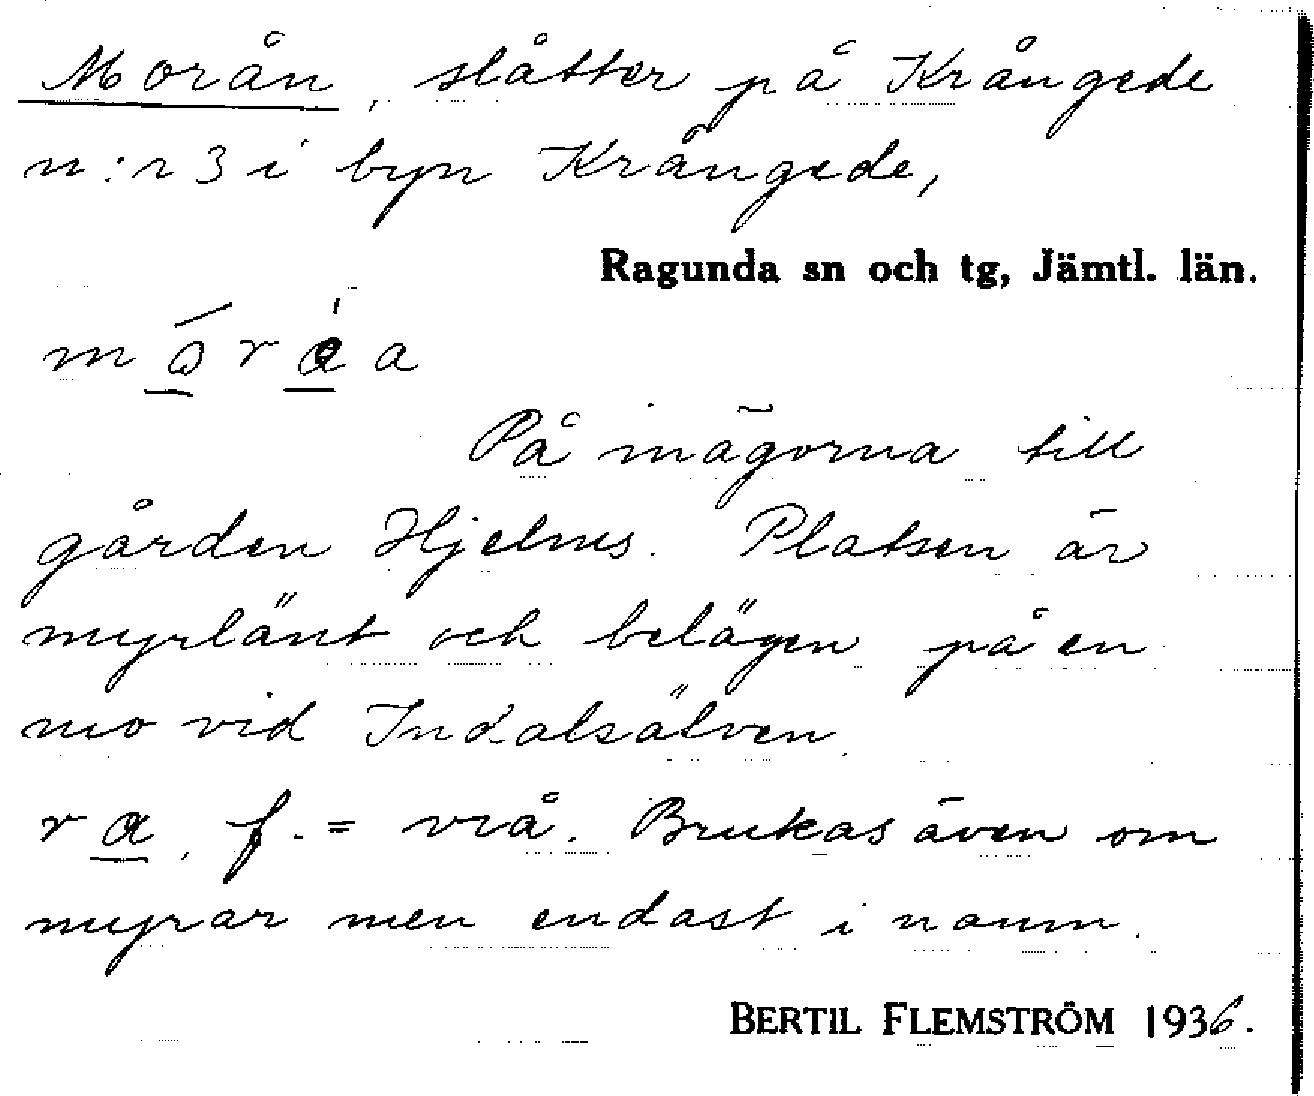 Morån, slåtter på Krångede
n:r 3 i byn Krångede,
Ragunda sn och tg, Jämtl. län.
På inägorna till
gården Hjelms. Platsen är
myrlänt och belägen på en
mo vid Indalsälven.
f. = vrå. Brukas även om
myrar men endast i namn.
BERTIL FLEMSTRÖM 1936.